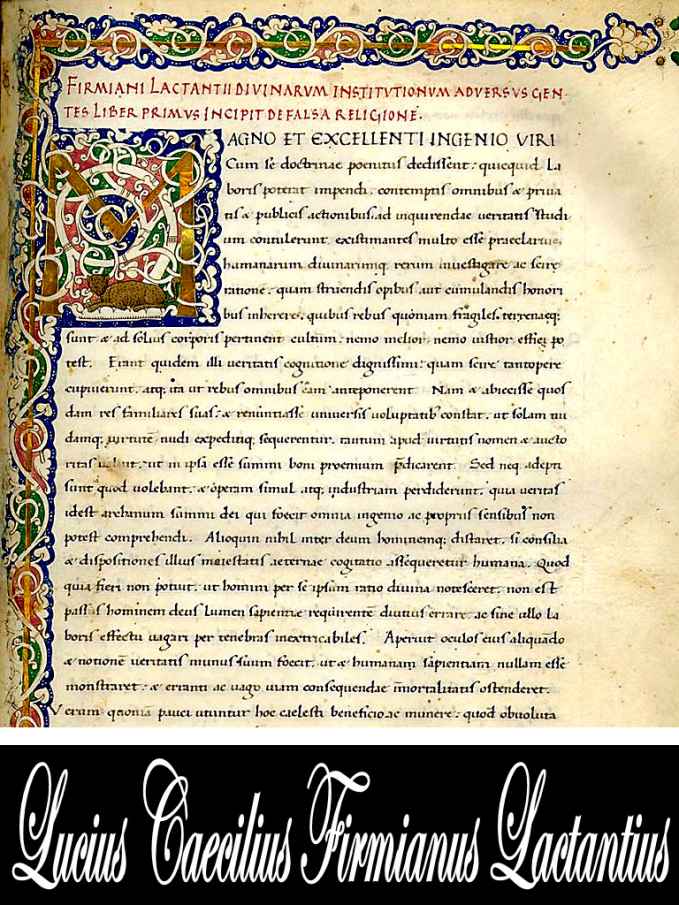 FIRMIANI LACTANTII DIVINARVM INSTITVTIONVM ADVERSVS GEN·
TES LIBER PRIMVS INCIPIT DE FALSA RELIGIONE·
MAGNO ET EXCELLENTI INGENIO VIRI
Cum se doctrinae poenitus dedissent: quicquid La
boris poterat impendi, contemptis omnibus & priua
tis & publicis actionibus, ad inquirendae ueritatis studi
um contulerunt, existimantes multo esse praeclarius,
humanarum diuinarumq rerum inuestigare ac scire
rationē, quam struendis opibus aut cumulandis honori
bus inherere, quibus rebus quoniam fragiles, terrenaeq;
sunt & ad solius corporis pertinent cultum, nemo melior, nemo iustior effici po
test. Erant quidem illi ueritatis cognitione dignissimi, quam scire tantopere
cupiuerunt, atq; ita ut rebus omnibus eam anteponerent. Nam & abiecisse quos
dam res familiares suas, & renuntiasse uniuersis uoluptatib constat, ut solam nu
damq; uirtutē nudi expeditiq; sequerentur, tantum apud uirtutis nomen & aucto
ritas ualuit, ut in ipsa esse summi boni proemium p̄dicarent. Sed neq adepti
sunt quod uolebant, & operam simul atq; industriam perdiderunt, quia ueritas
idest archanum summi dei qui foecit omnia ingenio ac propriis sensibus non
potest comprehendi. Alioquin nihil inter deum hominemq; distaret, si consilia
& dispositiones illius maiestatis aeternae cogitatio assequeretur humana. Quod
quia fieri non potuit, ut homini per se ipsum ratio diuina notesceret, non est
passus hominem deus lumen sapientiae requirentē diutius errare, ac sine ullo la
boris effectu uagari per tenebras inextricabiles. Aperuit oculos eius aliquādo
& notionē ueritatis munus suum foecit, ut & humanam sapientiam nullam esse
monstraret, & erranti ac uago uiam consequendae īmortalitatis ostenderet.
Verum quoniā pauci utuntur hoc caelesti beneficio ac munere, quod obuoluta
Lucius Caecilius Firmianus Lactantius